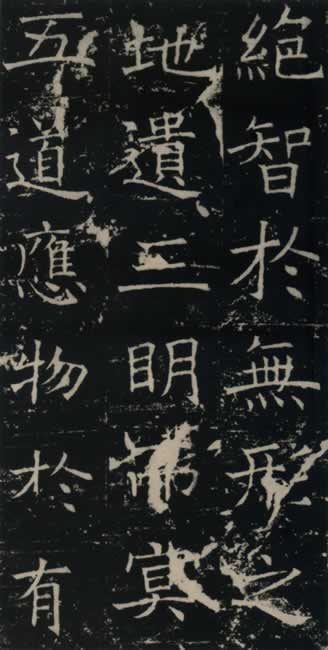 絕智於無形之
地遺三明而冥
五道應物於有